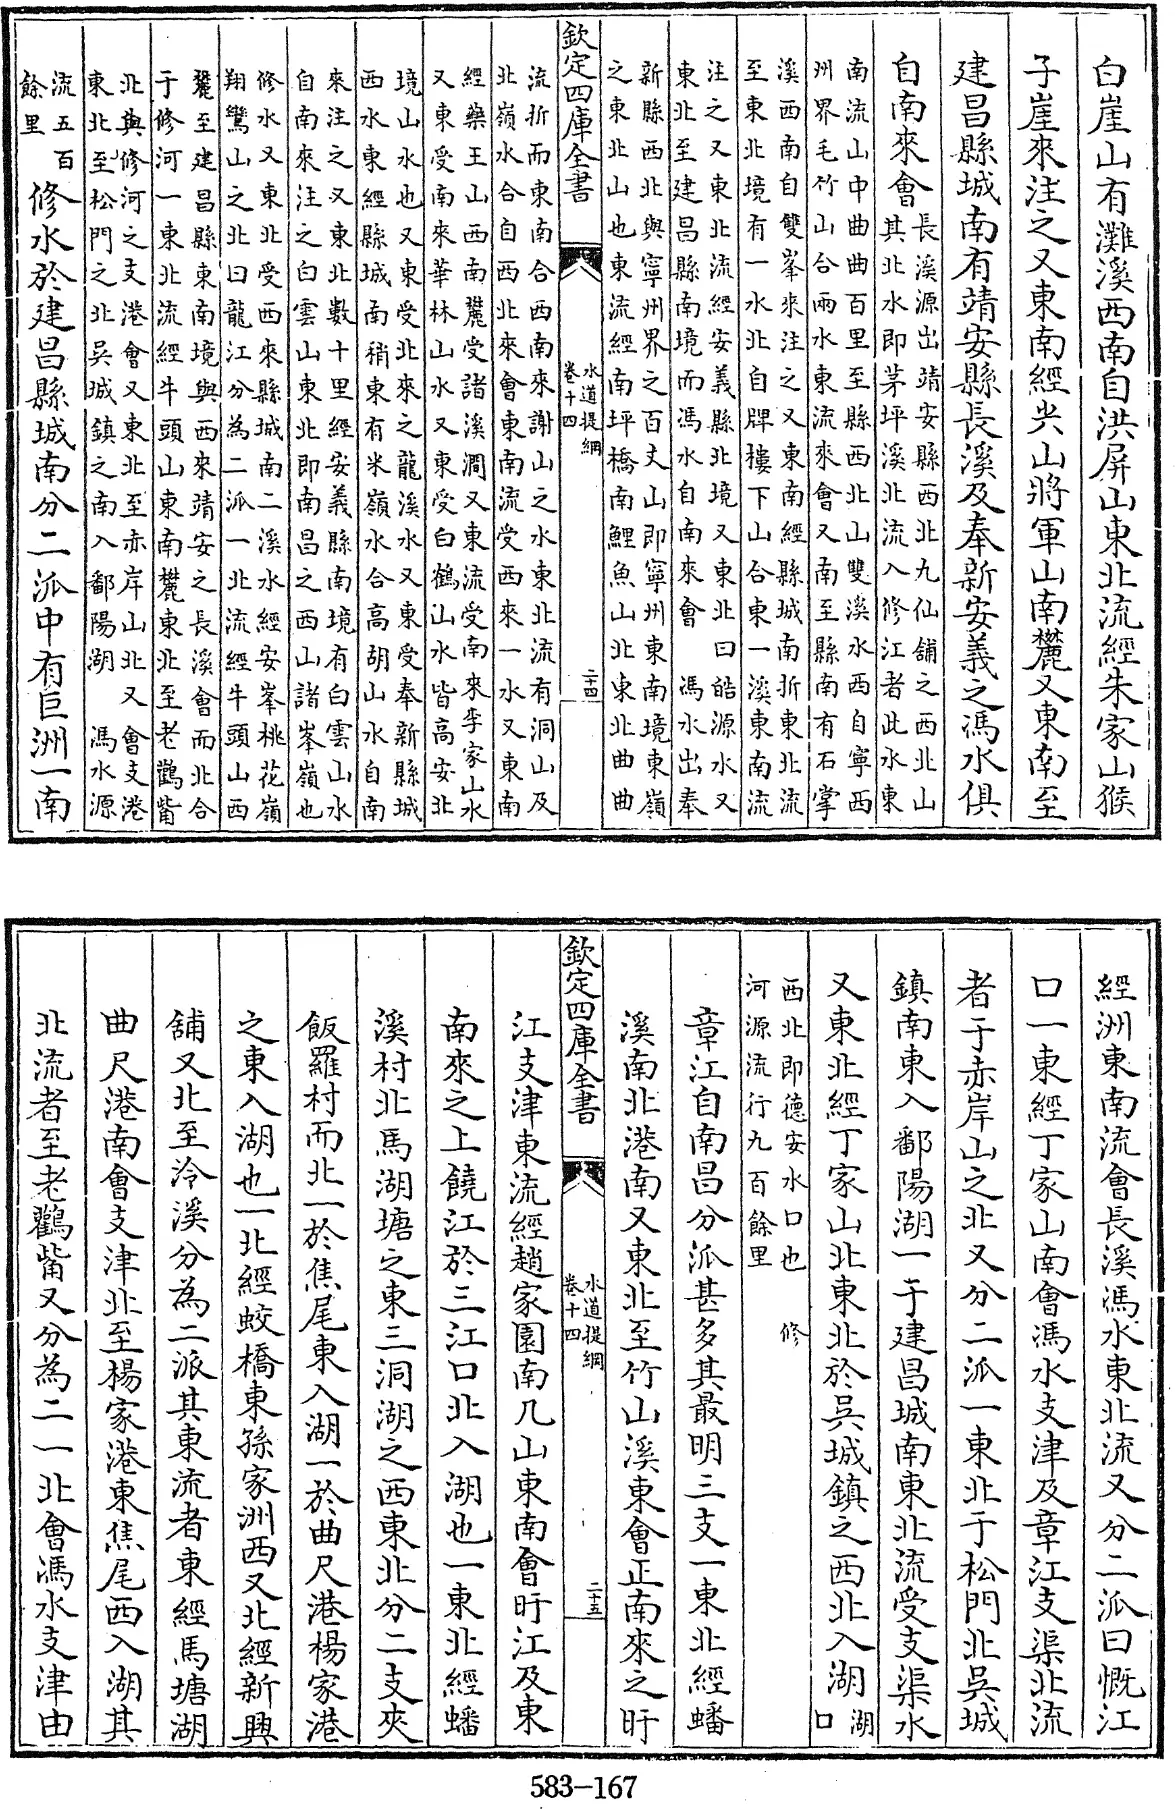 白崖山有灘溪西南自洪屏山東北流經朱家山猴
子崖來注之又東南經尖山將軍山南麓又東南至
建昌縣城南有靖安縣長溪及奉新安義之馮水俱
自南來會
長溪源出靖安縣西北九仙舖之西北山
其北水即茅坪溪北流入修江者此水東
南流山中曲曲百里至縣西北山雙溪水西自寧西
州界毛竹山合兩水東流來會又南至縣南有石掌
溪西南自雙峯來注之又東南經縣城南折東北流
至東北境有一水北自牌樓下山合東一溪東南流
注之又東北流經安義縣北境又東北曰皓源水又
東北至建昌縣南境而馮水自南來會 馮水出奉
新縣西北與寧州界之百丈山即寧州東南境東嶺
之東北山也東流經南坪橋南鯉魚山北東北曲曲
欽定四庫全書
水道提綱
卷十四
二十四
流折而東南合西南來謝山之水東北流有洞山及
北嶺水合自西北來會東南流受西來一水又東南
經藥王山西南麓受諸溪澗又東流受南來李家山水
又東受南來華林山水又東受白鶴山水皆高安北
境山水也又東受北來之龍溪水又東受奉新縣城
西水東經縣城南稍東有米嶺水合高胡山水自南
來注之又東北數十里經安義縣南境有白雲山水
自南來注之白雲山東北即南昌之西山諸峯嶺也
修水又東北受西來縣城南二溪水經安峯桃花嶺
翔鸞山之北曰龍江分為二派一北流經牛頭山西
麓至建昌縣東南境與西來靖安之長溪會而北合
于修河一東北流經牛頭山東南麓東北至老鸛觜
北與修河之支港會又東北至赤岸山北又會支港
東北至松門之北吳城鎮之南入鄱陽湖 馮水源
流五百
餘里
修水於建昌縣城南分二派中有巨洲一南
經洲東南流會長溪馮水東北流又分二派曰慨江
口一東經丁家山南會馮水支津及章江支渠北流
者于赤岸山之北又分二派一東北于松門北吳城
鎮南東入鄱陽湖一于建昌城南東北流受支渠水
又東北經丁家山北東北於吳城鎮之西北入湖
湖
口
西北即德安水口也 修
河源流行九百餘里
章江自南昌分派甚多其最明三支一東北經蟠
溪南北港南又東北至竹山溪東會正南來之盱
欽定四庫全書
水道提綱
卷十四
二十五
江支津東流經趙家園南几山東南會盱江及東
南來之上饒江於三江口北入湖也一東北經蟠
溪村北馬湖塘之東三洞湖之西東北分二支夾
飯羅村而北一於焦尾東入湖一於曲尺港楊家港
之東入湖也一北經蛟橋東孫家洲西又北經新興
舖又北至泠溪分為二派其東流者東經馬塘湖
曲尺港南會支津北至楊家港東焦尾西入湖其
北流者至老鸛觜又分為二一北會馮水支津由
583-167